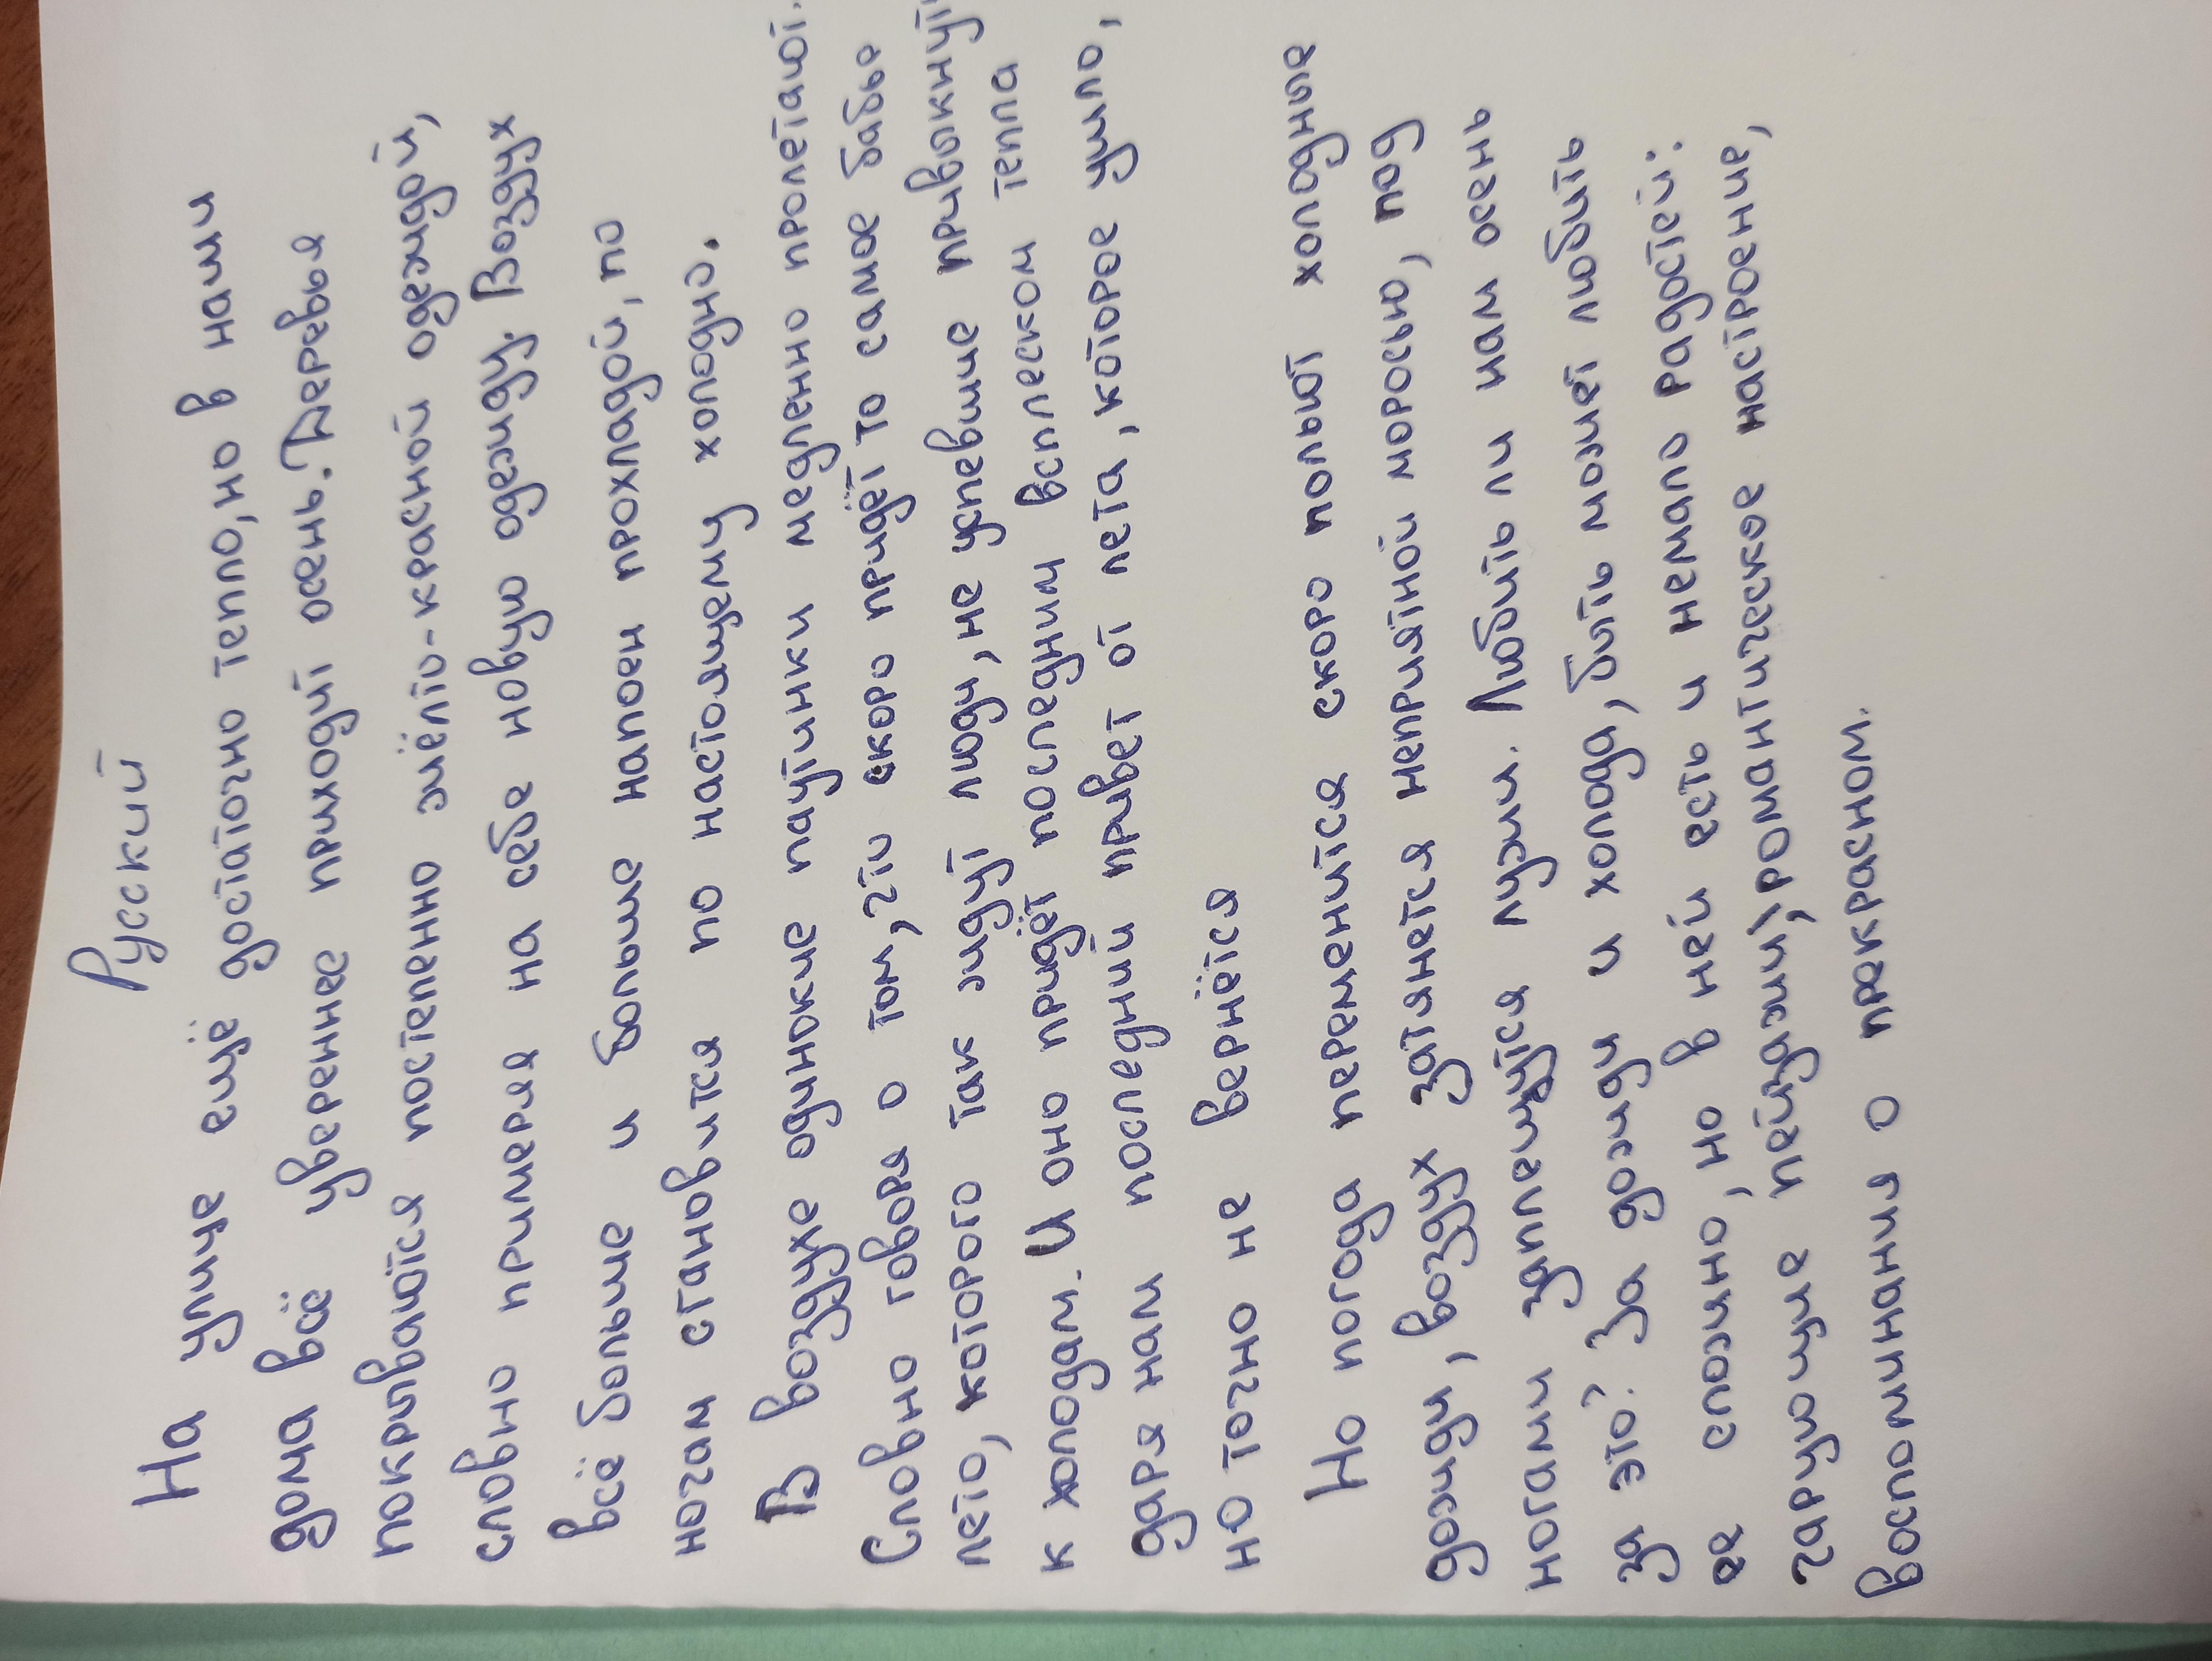 Русский
На улице ещё достаточно тепло, но в наши
дома всё увереннее приходит осень. Деревья
покрываются постепенно жёлто-красной одеждой,
словно примеряя на себе новую одежду. Воздух
всё больше и больше напоен прохладой, по
ночам становится по настоящему холодно.
В воздухе одинокие паутинки медленно пролетают.
Словно говоря о том, что скоро придёт то самое бабье
лето, которого так ждут люди, не успевшие привыкнуть
к холодам. И оно придёт последним всплеском тепла
даря нам последний привет от лета, которое ушло,
но точно не вернётся
Но погода переменится скоро польют холодные
дожди, воздух затянется неприятной моросью, под
ногами заплещутся лужи. Любить ли нам осень
за это? За дожди и холода, бить может любить
ее сложно, но в ней есть и немало радостей:
чарующие пейзажи, романтическое настроение,
воспоминания о прекрасном.